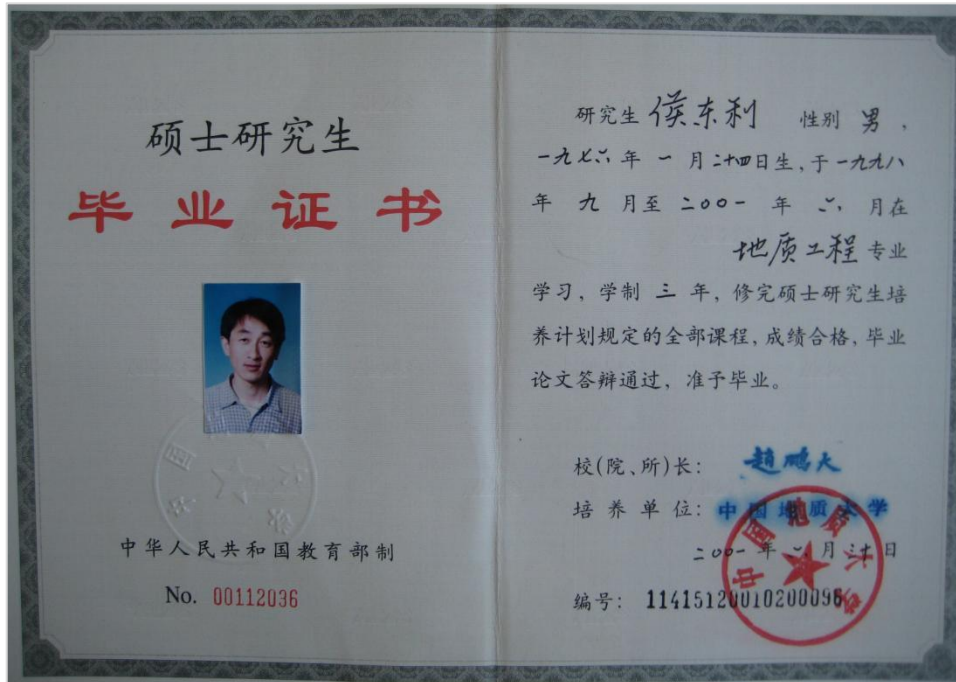 硕士研究生
毕业证书
中华人民共和国教育部制
No. 00112036
研究生 侯东利 性别 男，
一九七六年 一 月二十四日生，于一九九八
年 九 月至 二00一 年 六 月在
地质工程 专业
学习，学制 三 年，修完硕士研究生培
养计划规定的全部课程，成绩合格，毕业
论文答辩通过，准予毕业。
校(院、所)长： 赵鹏大
培 养 单 位：中国地质大学
二00一年 月 日
编号： 11415120010200096
中国地质大学